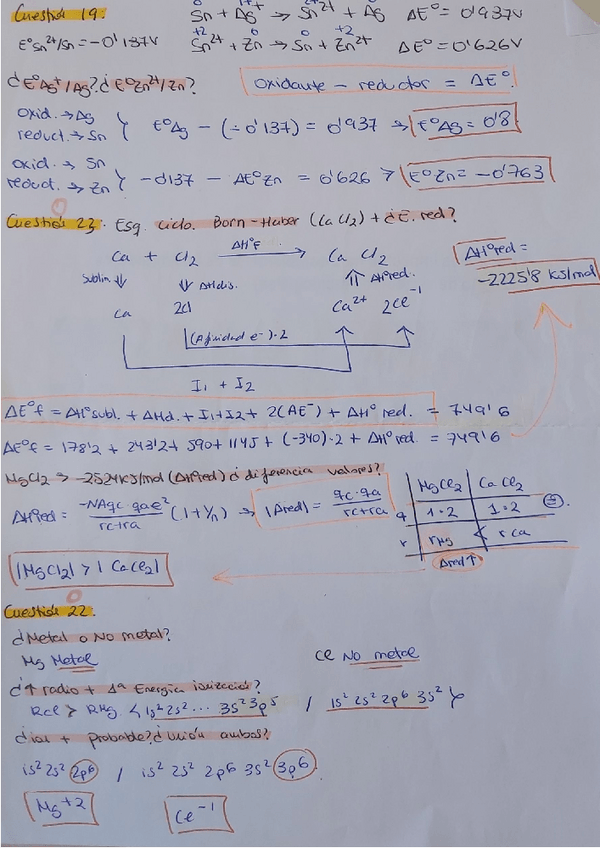 Cuestión 19.
0 1+ 2+ 0
Sn + Ag⁺ → Sn²⁺ + Ag ΔE° = 0'937V
E°Sn²⁺/Sn = -0'137V
+2 0 0 +2
Sn²⁺ + Zn → Sn + Zn²⁺ ΔE° = 0'626V
¿E°Ag⁺/Ag? ¿E°Zn²⁺/Zn? oxidante - reductor = ΔE°.
oxid. → Ag
reduct. → Sn } E°Ag - (-0'137) = 0'937 → E°Ag = 0'8
oxid. → Sn
reduct. → Zn } -0'137 - ΔE°Zn = 0'626 → E°Zn = -0'763
Cuestión 23. Esq. ciclo. Born-Haber (CaCl2) + ¿E. red?
Ca + Cl2 ΔH°F → CaCl2
ΔH°red = -2225'8 KJ/mol
Sublim ⇓ ⇓ ΔHdis. ⇑ ΔH°red.
Ca 2Cl Ca²⁺ 2Cl⁻¹
(Afinidad e⁻)·2
I1 + I2
ΔE°f = ΔH°subl. + ΔHd. + I1 + I2 + 2(AE⁻) + ΔH°red. = 749'6
ΔE°f = 178'2 + 243'2 + 590 + 1145 + (-340)·2 + ΔH°red. = 749'6
MgCl2 → -2524KJ/mol (ΔH°red) ¿diferencia valores?
ΔH°red = -NAqc·qae²/rc+ra (1+1/n) → |Δred| = qc·qa/rc+ra
MgCl2 CaCl2
q 1·2 1·2 (=).
r rMg < rCa
Δred↑
|MgCl2| > |CaCl2|
Cuestión 22.
¿Metal o No metal?
Mg Metal Cl No metal
¿↑ radio + 1ª Energía ionización?
RCl > RMg. < 1s² 2s² ... 3s² 3p⁵ / 1s² 2s² 2p⁶ 3s²
¿ion + probable? ¿Unión ambos?
1s² 2s² 2p⁶ / 1s² 2s² 2p⁶ 3s² 3p⁶
Mg⁺² Cl⁻¹